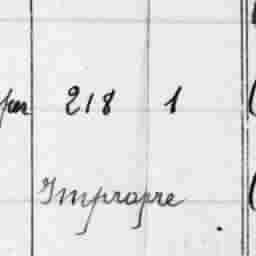 218 1
Impropre